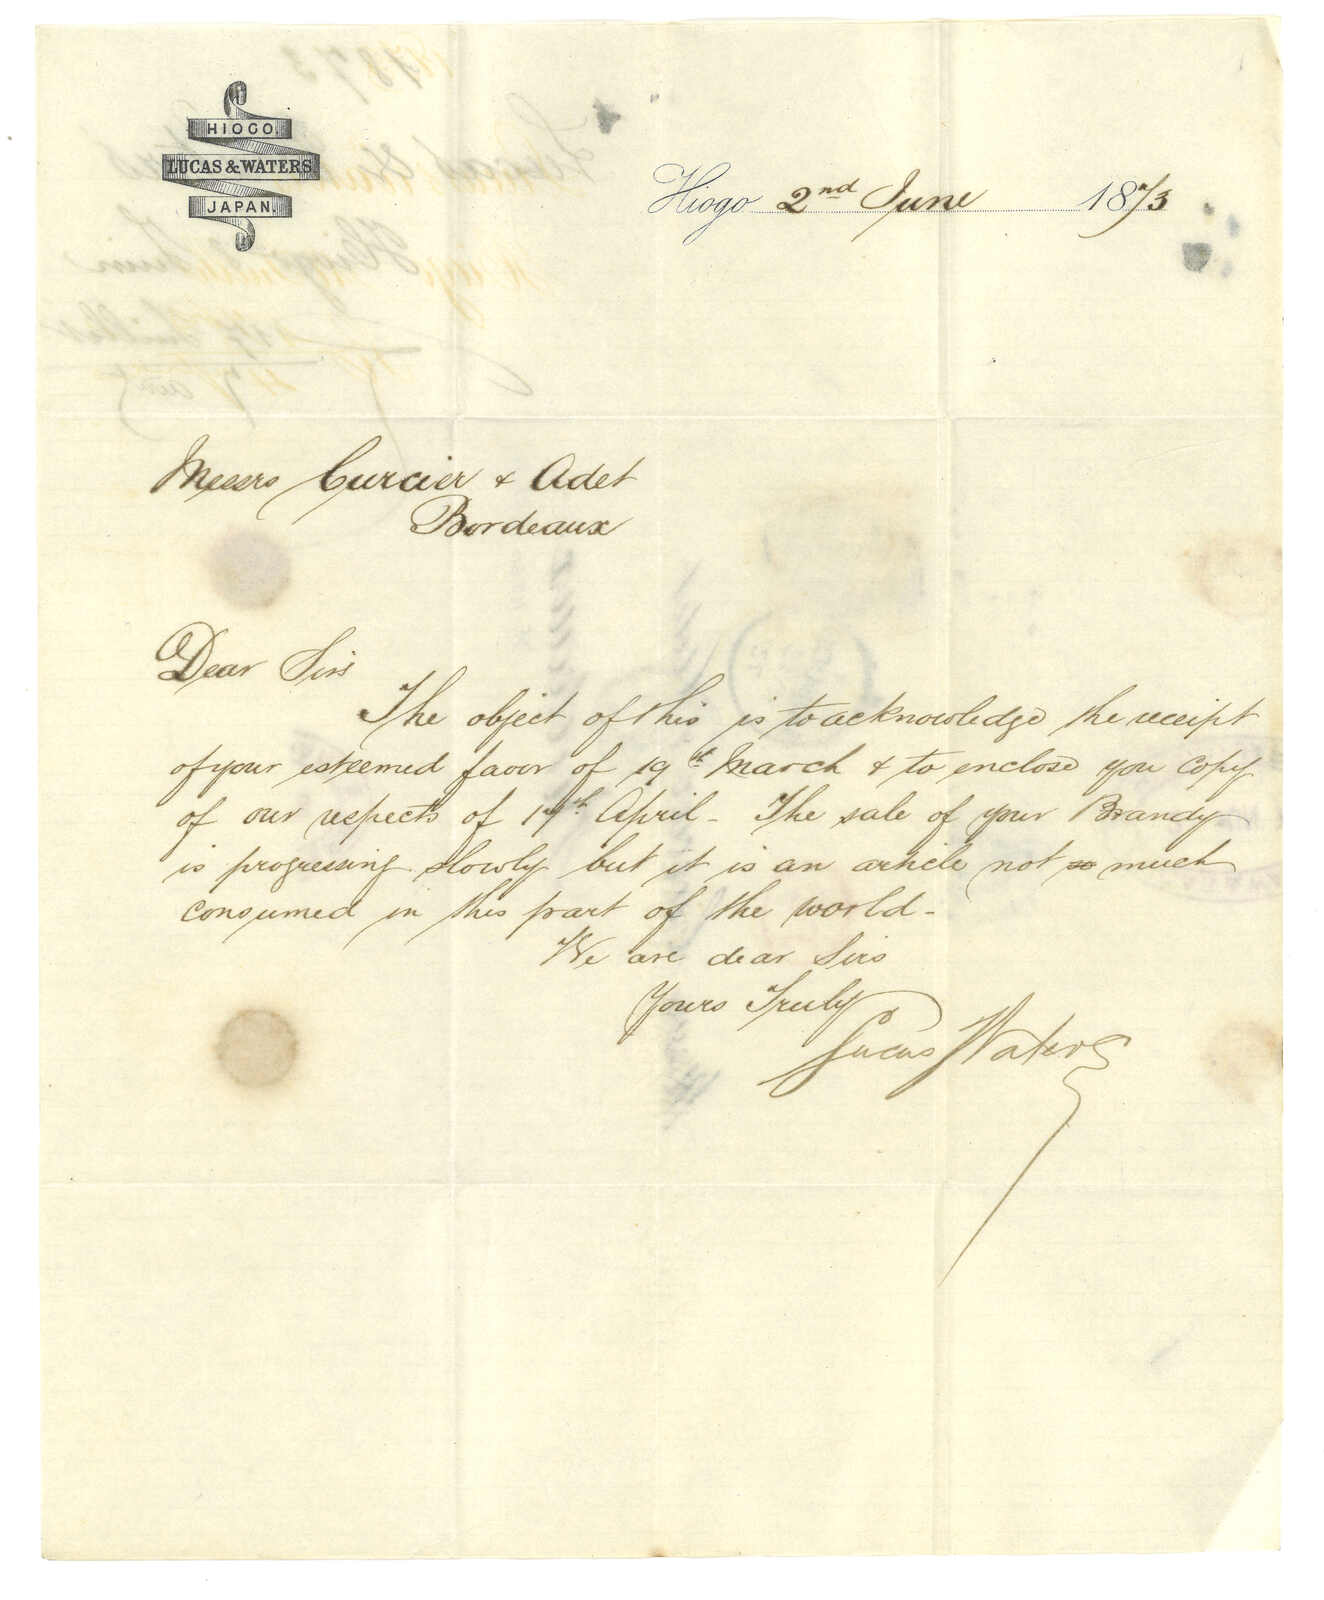 HIOGO.
LUCAS & WATERS
JAPAN.
Hiogo 2nd June 1873
Messrs Curcier & Adet
Bordeaux
Dear Sirs
The object of this is to acknowledge the receipt
of your esteemed favor of 19th March & to enclose you copy
of our respects of 17th April - The sale of your Brandy
is progressing slowly but it is an article not so much
consumed in this part of the world -
We are dear Sirs
Yours Truly
Lucas Waters
1873